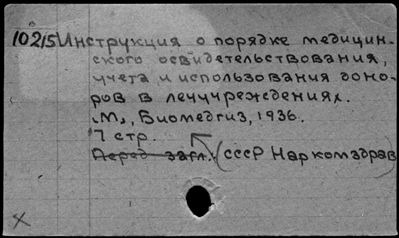 10215 Инструкция о порядке медицин-
ского освидетельствования,
учета и использования доно-
ров в лечучреждениях.
М., Биомедгиз, 1936.
7 стр.
Перед загл.: (СССР Наркомздрав)
х